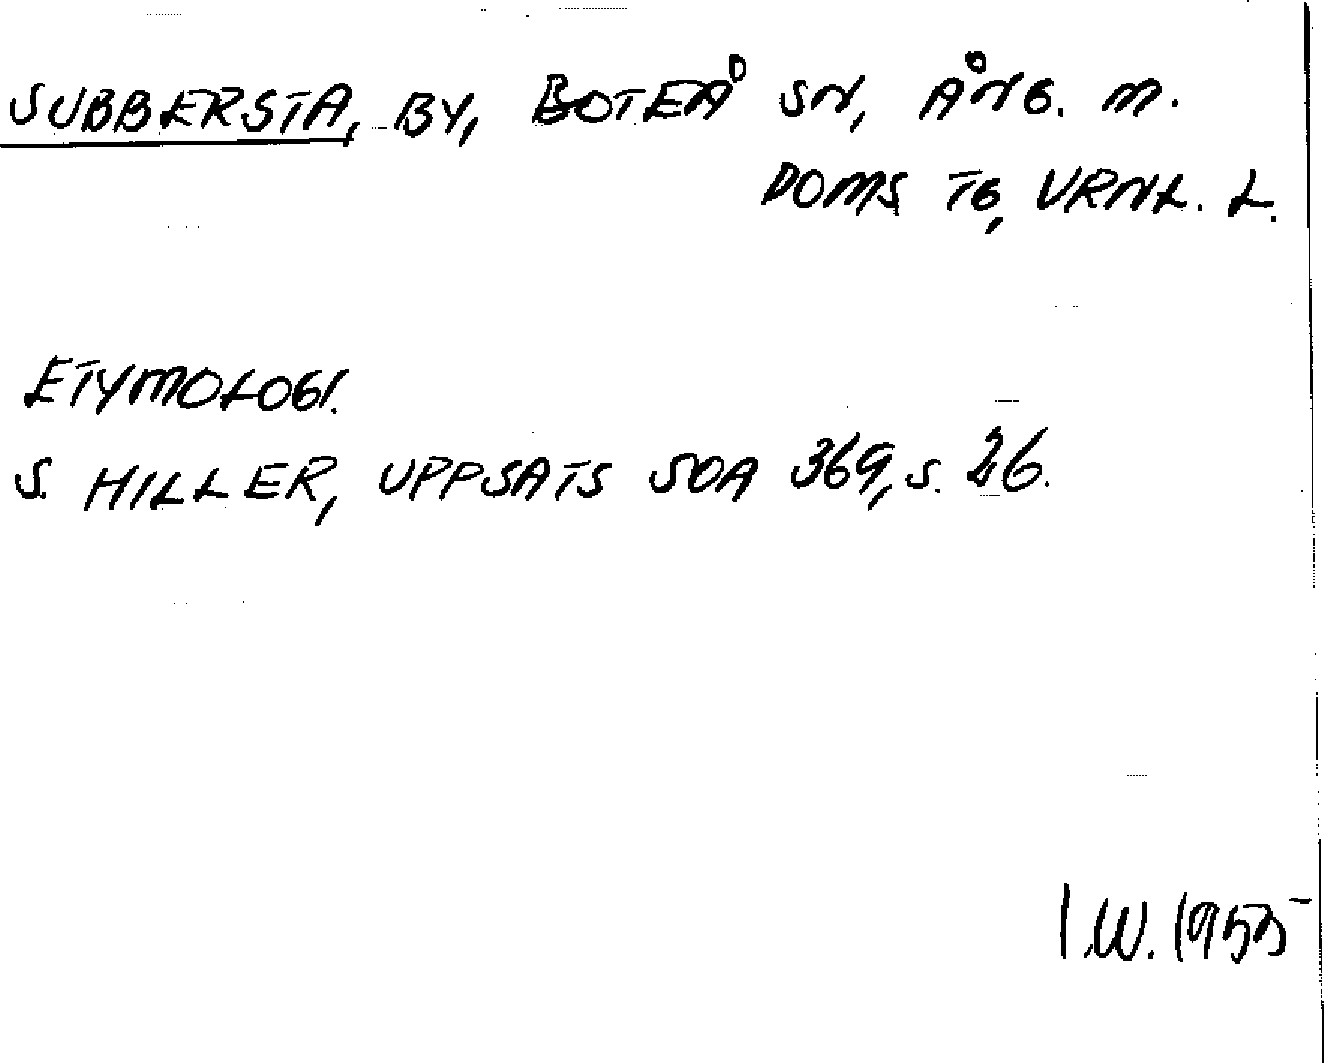 SUBBERSTA, BY, BOTEÅ SN, ÅNG. M.
DOMS TG, VRNL. L.
ETYMOLOGI.
S. HILLER, UPPSATS SOA 369, S. 26.
I.W. 1955